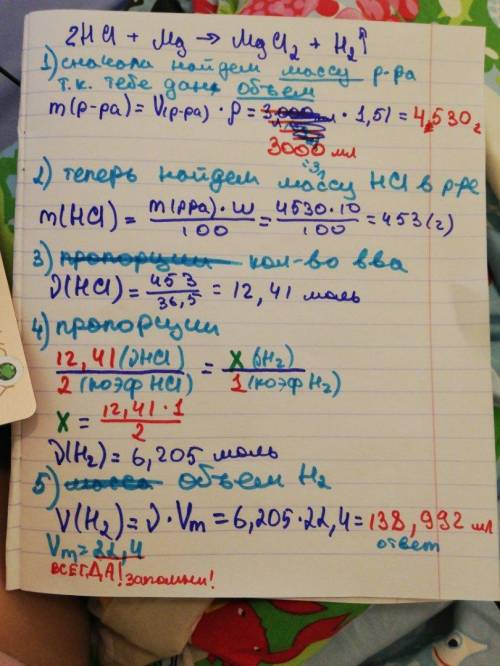 2HCl + Mg → MgCl₂ + H₂↑
1) сначала найдем массу р-ра
т.к. тебе дан объем
m(р-ра) = V(р-ра) · ρ = 3000 · 1,51 = 4,530 г
3000 мл
=3л
2) теперь найдем массу HCl в р-ре
m(HCl) = m(р-ра)·ω/100 = 4530·10/100 = 453 (г)
3) пропорции кол-во вва
ν(HCl) = 453/36,5 = 12,41 моль
4) пропорции
12,41 (νHCl)/2 (коэф HCl) = X (νH₂)/1 (коэф H₂)
X = 12,41·1/2
ν(H₂) = 6,205 моль
5) масса объем H₂
V(H₂) = ν · Vm = 6,205·22,4 = 138,992 мл
Vm = 22,4 ответ
ВСЕГДА! Запомни!